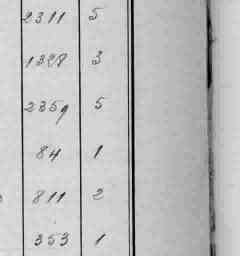 2311 5
1328 3
2359 5
84 1
811 2
353 1